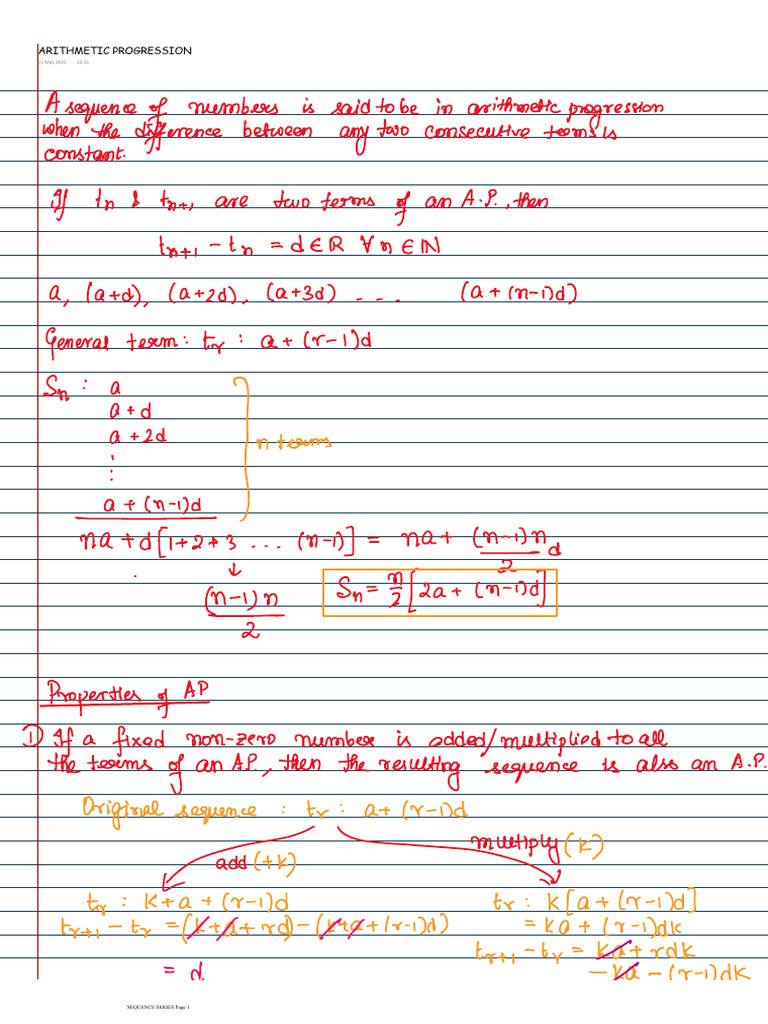 ARITHMETIC PROGRESSION
11 May 2025 22:11
A sequence of numbers is said to be in arithmetic progression
when the difference between any two consecutive terms is
constant.
If tn & tn+1 are two terms of an A.P., then
tn+1 - tn = d ∈ ℝ ∀ n ∈ ℕ
a, (a+d), (a+2d), (a+3d) - - - - (a + (n-1)d)
General term: tr : a + (r-1)d
Sn : a
a + d
a + 2d
n terms
a + (n-1)d
na + d[1+2+3 ... (n-1)] = na + (n-1)n/2 d
(n-1)n/2
Sn = n/2 [2a + (n-1)d]
Properties of AP
① If a fixed non-zero number is added/multiplied to all
the terms of an AP, then the resulting sequence is also an A.P.
Original sequence : tr : a + (r-1)d
add (+k)
multiply (k)
tr : k+a + (r-1)d
tr : k[a + (r-1)d]
tr+1 - tr = (k+a+rd) - (k+a+(r-1)d)
= ka + (r-1)dk
tr+1 - tr = ka + rdk
= d.
- ka - (r-1)dk
SEQUENCE SERIES Page 1